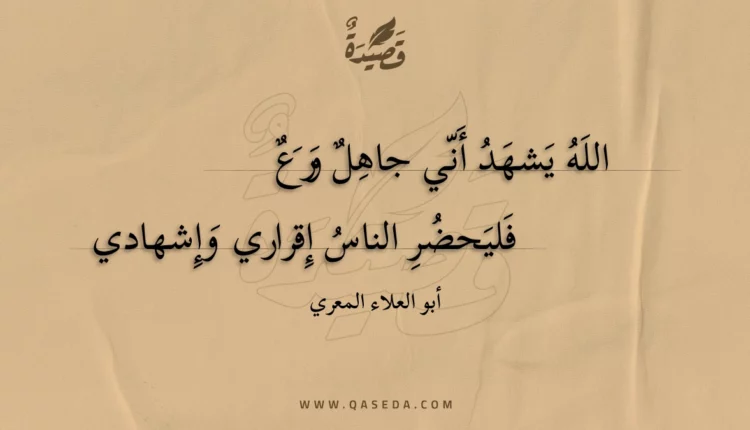 قَصِيدَةٌ
اللَهُ يَشهَدُ أَنّي جاهِلٌ وَرَعٌ
فَليَحضُرِ الناسُ إِقراري وَإِشهادي
أبو العلاء المعري
WWW.QASEDA.COM